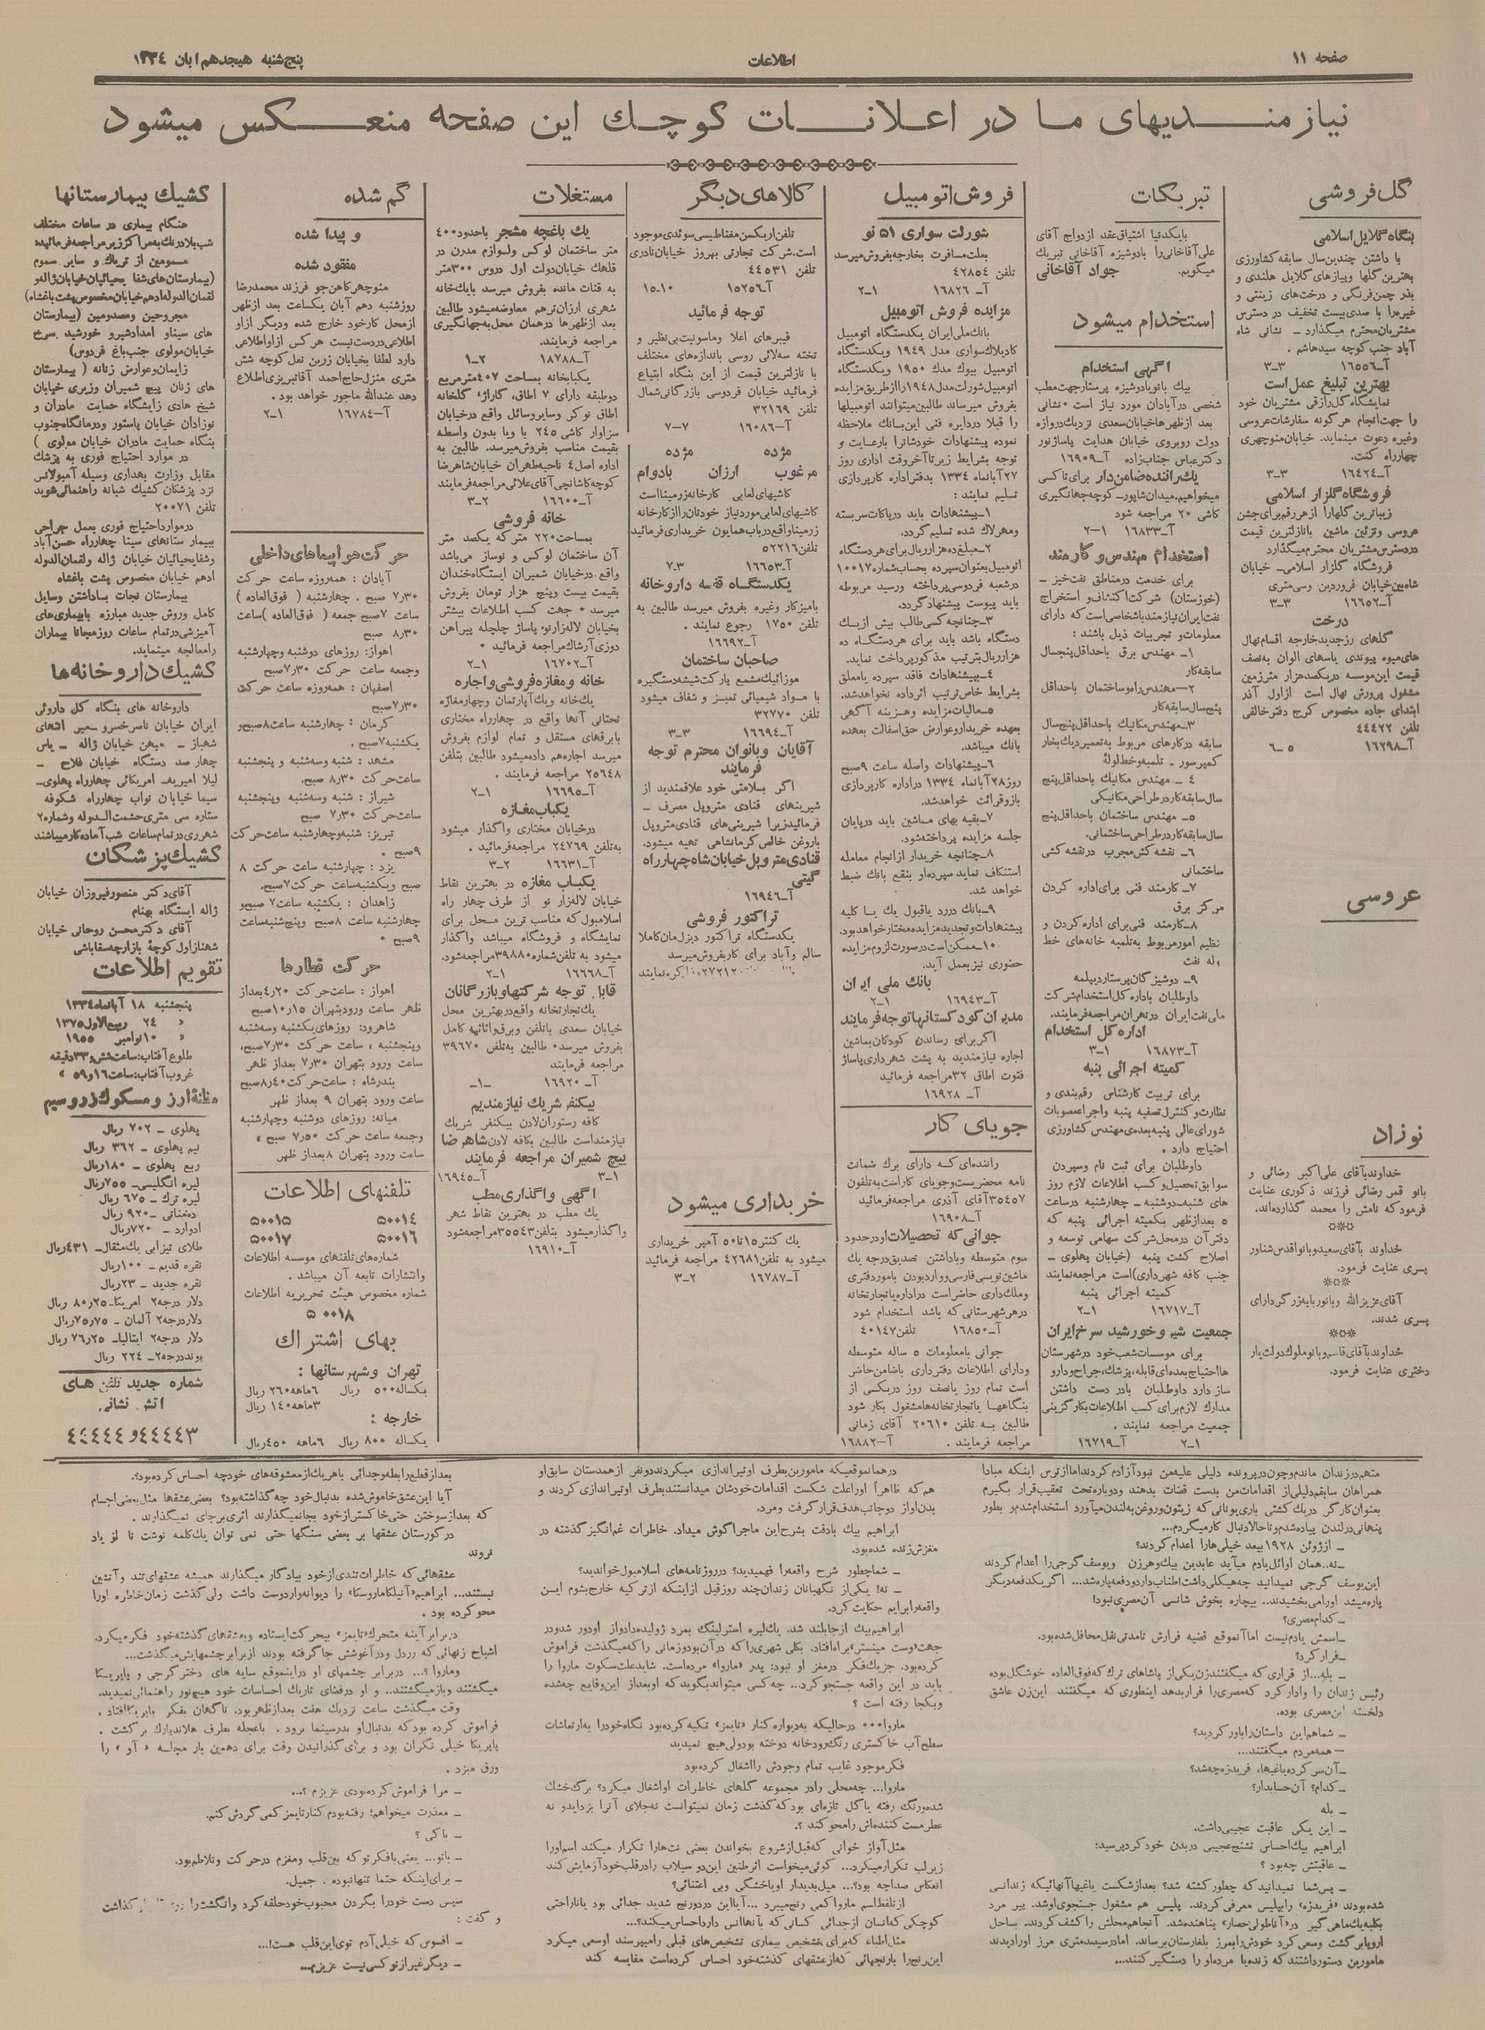 صفحه ۱۱
اطلاعات
پنج‌شنبه هیجدهم آبان ۱۳۳۴
نیازمندیهای ما در اعلانات کوچك این صفحه منعکس میشود
گل فروشی
بنگاه گلایل اسلامی
با داشتن چندین سال سابقه کشاورزی
بهترین گلها و پیازهای گلایل هلندی و
بذر چمن فرنگی و درخت‌های زینتی و
غیره را با صدی بیست تخفیف در دسترس
مشتریان محترم میگذارد ــ نشانی شاه
آباد جنب کوچه سیدهاشم .
آ‌ـ۱۶۵۵۶ ۳ـ۳
بهترین تبلیغ عمل است
نمایشگاه گل رازقی مشتریان خود
را جهت انجام هر گونه سفارشات عروسی
وغیره دعوت مینماید. خیابان منوچهری
چهارراه کنت.
آ‌ـ۱۶۴۲۴ ۳ـ۳
فروشگاه گلزار اسلامی
زیباترین گلها را از هر رقم برای جشن
عروسی وتزئین ماشین با نازلترین قیمت
در دسترس مشتریان محترم میگذارد
فروشگاه گلزار اسلامی‌ـ خیابان
شاه بین خیابان فروردین وسی متری
آ‌ـ۱۶۶۵۲ ۳ـ۳
درخت
گلهای رزجدید خارجه اقسام نهال
های میوه پیوندی یاسهای الوان به نصف
قیمت این موسسه در یکصد هزار متر زمین
مشغول پرورش نهال است ازاول آذر
ابتدای جاده مخصوص کرج دفتر خالقی
تلفن ۴۴۴۲۲
آ‌ـ۱۶۲۹۸ ۵ ـ ۶
عروسی
نوزاد
خداوند بآقای علی اکبر رضائی و
بانو قمر رضائی فرزند ذکوری عنایت
فرمود که نامش را محمد گذارده‌اند.
خداوند بآقای سعید و بانو اقدس شناور
پسری عنایت فرمود.
آقای عزیزالله و بانو ربابه زرگر دارای
پسری شدند.
خداوند بآقای قاسم و بانو ملوك دولت یار
دختری عنایت فرمود.
تبریکات
بایکدنیا اشتیاق عقد ازدواج آقای
علی آقاخانی را با دوشیزه آقاخانی تبریك
میگویم. جواد آقاخانی
استخدام میشود
آگهی استخدام
بیك بانو یا دوشیزه پرستار جهت مطب
شخصی در آبادان مورد نیاز است * نشانی
بعد از ظهرها خیابان سعدی نزدیك دروازه
دولت روبروی خیابان هدایت پاساژ نور
دکتر عباس جناب زاده آ‌ـ۱۶۹۰۹
یك راننده ضامن دار برای تاکسی
میخواهیم. میدان شاپور‌ـ کوچه جهانگیری
کاشی ۲۰ مراجعه شود
آ‌ـ۱۶۸۳۳ ۱ـ۲
استخدام مهندس و کارمند
برای خدمت در مناطق نفت خیز ـ
(خوزستان) شرکت اکتشاف و استخراج
نفت ایران نیازمند باشخاصی است که دارای
معلومات و تجربیات ذیل باشند :
۱ـ مهندس برق با حداقل پنجسال
سابقه کار
۲ـ مهندس راه و ساختمان با حداقل
پنج سال سابقه کار
۳ـ مهندس مکانیك با حداقل پنج سال
سابقه در کارهای مربوط به تعمیر دیك بخار
کمپرسور . تلمبه وخط لولهٔ
۴ ـ مهندس مکانیك با حداقل پنج
سال سابقه کار در طراحی مکانیکی
۵ـ مهندس ساختمان با حداقل پنج
سال سابقه کار در طراحی ساختمانی.
۶ـ نقشه کش مجرب در نقشه کشی
ساختمانی
۷ـ کارمند فنی برای اداره کردن
مرکز برق
۸ـ کارمند فنی برای اداره کردن و
تنظیم امور مربوط به تلمبه خانه‌های خط
لوله نفت
۹ـ دوشیزگان پرستار دیپلمه
داوطلبان باداره کل استخدام شرکت
ملی نفت ایران در تهران مراجعه فرمایند.
اداره کل استخدام
آ‌ـ۱۶۸۷۳ ۱ـ۳
کمیته اجرائی پنبه
برای تربیت کارشناس رقم بندی و
نظارت و کنترل تصفیه پنبه و اجرا مصوبات
شورای عالی پنبه بعده‌ی مهندس کشاورزی
احتیاج دارد .
داوطلبان برای ثبت نام وسپردن
سوابق تحصیل و کسب اطلاعات لازم روز
های شنبه‌ـ دوشنبه ـ چهارشنبه در ساعت
۵ بعد از ظهر بکمیته اجرائی پنبه که
دفتر آن در محل شرکت سهامی توسعه و
اصلاح کشت پنبه (خیابان پهلوی ـ
جنب کافه شهرداری) است مراجعه نمایند
کمیته اجرائی پنبه
آ‌ـ۱۶۷۱۷ ۱ـ۲
جمعیت شیر و خورشید سرخ ایران
برای موسسات شعب خود در شهرستان
ها احتیاج بعده‌ای قابله، پزشك، جراح و دارو
ساز دارد داوطلبان با در دست داشتن
مدارك لازم برای کسب اطلاعات بکار گزینی
جمعیت مراجعه نمایند .
آ‌ـ۱۶۷۱۹ ۱ـ۲
فروش اتومبیل
شورلت سواری ۵۱ نو
بعلت مسافرت بخارجه بفروش میرسد
تلفن ۴۲۸۵۴
آ‌ـ ۱۶۸۲۶ ۱ـ۲
مزایده فروش اتومبیل
بانك ملی ایران یکدستگاه اتومبیل
کادیلاك سواری مدل ۱۹۴۹ ویکدستگاه
اتومبیل بیوك مدل ۱۹۵۰ ویکدستگاه
اتومبیل شورلت مدل ۱۹۴۸ را از طریق مزایده
بفروش میرساند طالبین میتوانند اتومبیلها
را قبلا در دایره فنی این بانك ملاحظه
نموده پیشنهادات خودشانرا با رعایت و
توجه بشرایط زیر تا آخر وقت اداری روز
۲۷ آبانماه ۱۳۳۴ بدفتر اداره کارپردازی
تسلیم نمایند :
۱ـ پیشنهادات باید درپاکات سربسته
ومهر لاك شده تسلیم گردد.
۲ـ مبلغ ده هزار ریال برای هر دستگاه
اتومبیل بعنوان سپرده بحساب شماره ۱۰۰۱۷
در شعبه فردوسی پرداخته ورسید مربوطه
باید پیوست پیشنهاد گردد.
۳ـ چنانچه کسی طالب بیش از یك
دستگاه باشد باید برای هر دستگاه ده
هزار ریال بترتیب مذکور پرداخت نماید.
۴ـ پیشنهادات فاقد سپرده یا معلق
بشرایط خاص ترتیب اثر داده نخواهد شد.
۵ـ مالیات مزایده و هزینه آگهی
بعهده خریدار و عوارض حق اسفالت بعهده
بانك میباشد.
۶ـ پیشنهادات واصله ساعت ۹ صبح
روز ۲۸ آبانماه ۱۳۳۴ در اداره کارپردازی
باز و قرائت خواهد شد.
۷ـ بقیه بهای ماشین باید درپایان
جلسه مزایده پرداخته شود.
۸ـ چنانچه خریدار از انجام معامله
استنکاف نماید سپرده او بنفع بانك ضبط
خواهد شد.
۹ـ بانك در رد یا قبول یك یا کلیه
پیشنهادات و تجدید مزایده مختار خواهد بود.
۱۰ـ ممکن است در صورت لزوم مزایده
حضوری نیز بعمل آید.
بانك ملی ایران
آ‌ـ۱۶۹۴۳ ۱ـ۲
مدیران کودکستانها توجه فرمایند
اگر برای رساندن کودکان بماشین
اجاره نیازمندید به پشت شهرداری پاساژ
فتوت اطاق ۳۲ مراجعه فرمائید
آ‌ـ ۱۶۹۲۸
جویای کار
راننده‌ای که دارای برك ضمانت
نامه محضریست وجویای کار است به تلفون
۳۵۴۵۷ آقای آذری مراجعه فرمائید
آ‌ـ۱۶۹۰۸
جوانی که تحصیلات او در حدود
سوم متوسطه و با داشتن تصدیق درجه یك
ماشین نویسی فارسی و وارد بودن بامور دفتری
و ملك داری حاضر است در اداره یا تجارتخانه
درهر شهرستانی که باشد استخدام شود
آ‌ـ۱۶۸۵۰ تلفن ۴۰۱۴۷
جوانی با معلومات ۵ ساله متوسطه
ودارای اطلاعات دفترداری با ضامن حاضر
است تمام روز یا نصف روز در یکی از
بنگاهها یا تجارتخانه‌ها مشغول بکار شود
طالبین به تلفن ۲۰۶۱۰ آقای زمانی
مراجعه فرمایند . آ‌ـ۱۶۸۸۲
کالاهای دیگر
تلفن اریکسن مغناطیسی سوئدی موجود
است. شرکت تجارتی بهروز خیابان نادری
تلفن ۴۴۵۳۱
آ‌ـ۱۵۲۵۶ ۱۰ـ۱۵
توجه فرمائید
قیبرهای اعلا و ماسونیت بی‌نظیر و
تخته سه‌لائی روسی باندازه‌های مختلف
با نازلترین قیمت از این بنگاه ابتیاع
فرمائید خیابان فردوسی بازرگانی شمال
تلفن ۳۲۱۶۹
آ‌ـ۱۶۰۸۶ ۷ـ۷
مژده مژده
مرغوب ارزان بادوام
کاشیهای لعابی کارخانه زرمینا است
کاشیهای لعابی مورد نیاز خودتان را از کارخانه
زرمینا واقع درباب همایون خریداری فرمائید
تلفن ۵۲۲۱۶
آ‌ـ۱۶۶۵۳ ۳ـ۷
یکدستگاه قفسه داروخانه
بامیز کار وغیره بفروش میرسد طالبین به
تلفن ۱۷۵۰ رجوع نمایند .
آ‌ـ۱۶۶۹۲
صاحبان ساختمان
موزائیك مشمع پارکت شیشه دستگیره
با مواد شیمیائی تمیز و شفاف میشود
تلفن ۳۲۷۷۰
آ‌ـ۱۶۶۹۴ ۳ـ۳
آقایان وبانوان محترم توجه
فرمایند
اگر بسلامتی خود علاقمندید از
شیرینهای قنادی متروپل مصرف ـ
فرمائید زیرا شیرینی‌های قنادی متروپل
باروغن خالص کرمانشاهی تهیه میشود.
قنادی متروپل خیابان شاه چهارراه
گیتی
آ‌ـ۱۶۹۴۶
تراکتور فروشی
یکدستگاه تراکتور دیزل مان کاملا
سالم وآماد برای کار بفروش میرسد
خریداری میشود
یك کنتر ۱۵ تا ۵۰ آمپر خریداری
میشود به تلفن ۴۲۶۸۱ مراجعه فرمائید
آ‌ـ۱۶۷۸۷ ۲ـ۳
مستغلات
یك باغچه مشجر با حدود ۴۰۰
متر ساختمان لوکس ولوازم مدرن در
قلهك خیابان دولت اول دروس ۳۰۰ متر
به قنات مانده بفروش میرسد با یك خانه
شهری ارزان ترهم معاوضه میشود طالبین
بعد از ظهرها در همان محل به جهانگیری
مراجعه فرمایند.
آ‌ـ۱۸۷۸۸ ۲ـ۱
یکبابخانه بمساحت ۴۰۷ متر مربع
دو طبقه دارای ۷ اطاق، گاراژ، گلخانه
اطاق نوکر و سایر وسائل واقع در خیابان
سزاوار کاشی ۲۴۵ با ویا بدون واسطه
بقیمت مناسب بفروش میرسد. طالبین به
اداره اصل ۴ ناحیه طهران خیابان شاهرضا
کوچه کاشانچی آقای علائی مراجعه فرمایند
آ‌ـ۱۶۶۰۰ ۲ـ۳
خانه فروشی
بمساحت ۲۲۰ متر که یکصد متر
آن ساختمان لوکس و نوساز می‌باشد
واقع در خیابان شمیران ایستگاه خندان
بقیمت بیست وپنج هزار تومان بفروش
میرسد * جهت کسب اطلاعات بیشتر
بخیابان لاله‌زار نو. پاساژ چلچله پیراهن
دوزی آرشاك مراجعه فرمائید *
آ‌ـ۱۶۷۰۲ ۱ـ۲
خانه ومغازه فروشی واجاره
یك خانه ویك آپارتمان وچهار مغازه
تحتانی آنها واقع در چهارراه مختاری
با برق‌های مستقل و تمام لوازم بفروش
میرسد اجاره هم داده میشود طالبین بتلفن
۲۵۶۴۸ مراجعه فرمایند .
آ‌ـ۱۶۶۹۵ ۱ـ۲
یکباب مغازه
در خیابان مختاری واگذار میشود
به تلفن ۲۴۷۶۹ مراجعه فرمائید .
آ‌ـ۱۶۶۳۱ ۲ـ۳
یکباب مغازه در بهترین نقاط
خیابان لاله‌زار نو از طرف چهار راه
اسلامبول که مناسب ترین محل برای
نمایشگاه و فروشگاه میباشد واگذار
میشود به تلفن شماره ۳۹۸۸۰ مراجعه شود.
آ‌ـ۱۶۶۶۸ ۱ـ۲
قابل توجه شرکتها وبازرگانان
یك تجارتخانه واقع در بهترین محل
خیابان سعدی با تلفن وبرق واثاثیه کامل
بفروش میرسد * طالبین به تلفن ۳۹۶۷۰
مراجعه فرمایند
آ‌ـ ۱۶۹۲۰ ـ۱ـ
بیکنفر شریك نیازمندیم
کافه رستوران لادن بیکنفر شریك
نیازمند است طالبین بکافه لادن شاهرضا
پیچ شمیران مراجعه فرمایند
آ‌ـ۱۶۹۴۵ ۱ـ۳
آگهی واگذاری مطب
یك مطب در بهترین نقاط شهر
واگذار میشود بتلفن ۳۵۵۴۳ مراجعه شود
آ‌ـ۱۶۹۱۰
گم شده
و پیدا شده
مفقود شده
منوچهر کاهن جو فرزند محمدرضا
روز شنبه دهم آبان یکساعت بعد از ظهر
از محل کار خود خارج شده ودیگر از او
اطلاعی در دست نیست هر کس از او اطلاعی
دارد لطفا بخیابان زرین نعل کوچه شش
متری منزل حاج احمد آقا تبریزی اطلاع
دهد عندالله ماجور خواهد بود .
آ‌ـ۱۶۷۸۴ ۱ـ۲
حرکت هواپیماهای داخلی
آبادان : همه روزه ساعت حرکت
۷٫۳۰ صبح . چهارشنبه ( فوق العاده )
ساعت ۷ صبح جمعه ( فوق العاده )ساعت
۸٫۳۰ صبح
اهواز: روزهای دوشنبه وچهارشنبه
وجمعه ساعت حرکت ۷٫۳۰ صبح
اصفهان : همه روزه ساعت حرکت
۷٫۳۰ صبح
کرمان : چهارشنبه ساعت ۸ صبح و
یکشنبه ۷ صبح .
مشهد : شنبه وسه‌شنبه و پنجشنبه
ساعت حرکت ۸٫۳۰ صبح.
شیراز : شنبه وسه‌شنبه وپنجشنبه
ساعت حرکت ۷٫۳۰ صبح
تبریز: شنبه وچهارشنبه ساعت حرکت
۹ صبح .
یزد : چهارشنبه ساعت حرکت ۸
صبح ویکشنبه ساعت حرکت ۷ صبح.
زاهدان : یکشنبه ساعت ۷ صبح و
چهارشنبه ساعت ۸ صبح وپنجشنبه ساعت
۹ صبح *
حرکت قطارها
اهواز : ساعت حرکت ۴٫۲۰ بعد از
ظهر ساعت ورود بتهران ۱۰٫۱۵ صبح
شاهرود: روزهای یکشنبه وسه‌شنبه
وپنجشنبه ، ساعت حرکت ۷٫۳۰ صبح،
ساعت ورود بتهران ۷٫۳۰ بعد از ظهر
بندرشاه : ساعت حرکت ۸٫۴۰ صبح
ساعت ورود بتهران ۹ بعد از ظهر
میانه: روزهای دوشنبه وچهارشنبه
وجمعه ساعت حرکت ۷٫۵۰ صبح ،
ساعت ورود بتهران ۸ بعد از ظهر
تلفنهای اطلاعات
۵۰۰۱۴ ۵۰۰۱۵
۵۰۰۱۶ ۵۰۰۱۷
شماره‌های تلفنهای موسسه اطلاعات
وانتشارات تابعه آن میباشد .
شماره مخصوص هیئت تحریریه اطلاعات
۵۰۰۱۸
بهای اشتراك
تهران وشهرستانها :
یکساله ۵۰۰ ریال ۶ ماهه ۲۶۰ ریال
۳ ماهه ۱۴۰ ریال
خارجه :
یکساله ۸۰۰ ریال ۶ ماهه ۴۵۰ ریال
کشیك بیمارستانها
هنگام بیماری در ساعات مختلف
شب بلادرنك به مراکز زیر مراجعه فرمائید:
مسمومین از تریاك و سایر سموم
(بیمارستان‌های شفا یحیائیان خیابان ژاله و
لقمان الدوله ادهم خیابان مخصوص پشت باغشاه)
مجروحین ومصدومین (بیمارستان
های سینا و امداد شیرو خورشید سرخ
خیابان مولوی جنب باغ فردوس)
زایمان وعوارض زنانه ( بیمارستان
های زنان پیچ شمیران وزیری خیابان
شیخ هادی زایشگاه حمایت مادران و
نوزادان خیابان پاستور ودرمانگاه جنوب
بنگاه حمایت مادران خیابان مولوی )
در موارد احتیاج فوری به پزشك
مقابل وزارت بهداری وسیله آمبولانس
نزد پزشکان کشیك شبانه راهنمائی شوید
تلفن ۲۰۰۷۱
در موارد احتیاج فوری بعمل جراحی
ببیمارستانهای سینا چهارراه حسن آباد
وشفا یحیائیان خیابان ژاله ولقمان الدوله
ادهم خیابان مخصوص پشت باغشاه
بیمارستان نجات با داشتن وسایل
کامل وروش جدید مبارزه با بیماری‌های
آمیزشی در تمام ساعات روز مجانا بیماران
را معالجه مینماید.
کشیك داروخانه‌ها
داروخانه های بنگاه کل داروئی
ایران خیابان ناصرخسرو
شهباز ـ میهن خیابان ژاله ـ یاس
چهار صد دستگاه خیابان فلاح ـ
لیلا امیریه‌ـ امریکائی چهارراه پهلوی‌ـ
سیما خیابان نواب چهارراه شکوفه
ستاره سی متری حشمت الدوله وشماره ۲
شهرری در تمام ساعات شب آماده کار میباشند
کشیك پزشکان
آقای دکتر منصور فیروزان خیابان
ژاله ایستگاه بهنام
آقای دکتر محسن روحانی خیابان
شهناز اول کوچهٔ بازارچه سقاباشی
تقویم اطلاعات
پنجشنبه ۱۸ آبانماه ۱۳۳۴
» ۲۴ ربیع‌الاول ۱۳۷۵
» ۱۰ نوامبر ۱۹۵۵
طلوع آفتاب: ساعت شش و ۳۳ دقیقه
غروب آفتاب: ساعت ۱۶ و ۵۹ »
مظنهٔ ارز ومسکوك زروسیم
پهلوی ـ ۷۰۲ ریال
نیم پهلوی ـ ۳۶۲ ریال
ربع پهلوی ـ ۱۸۰ ریال
لیره انگلیسی‌ـ ۷۵۵ ریال
لیره ترك ـ ۶۷۵ ریال
ده‌مناتی ـ ۹۲۰ ریال
ادوارد ـ ۷۲۰ ریال
طلای تیزابی یك مثقال‌ـ ۴۳۱ ریال
نقره قدیم ـ ۱۰۰ ریال
نقره جدید ـ ۲۳ ریال
دلار درجه ۲ امریکا‌ـ ۸۰٫۲۵ ریال
دلار درجه ۲ آلمان ـ ۷۵٫۷۵ ریال
دلار درجه ۲ ایتالیا‌ـ ۷۶٫۲۵ ریال
پوند درجه ۲‌ـ ۲۲۴ ریال
شماره جدید تلفن های
آتش نشانی
۴۴۴۴۳ و ۴۴۴۴۴
متهم در زندان ماندم وچون در پرونده دلیلی علیه من نبود آزادم کردند اما از ترس اینکه مبادا
همراهان سابقم دلیلی از اقدامات من بدست قضات بدهند ودوباره تحت تعقیب قرار بگیرم
بعنوان کارگر دریك کشتی باری یونانی که زیتون وروغن به لندن میآورد استخدام شدم و بطور
پنهانی درلندن پیاده شدم و تا حالا دنبال کار میگردم...
ـ از ژوئن ۱۹۲۸ ببعد خیلی‌ها را اعدام کردند؟
ـ نه.. همان اوائل یادم میآید عابدین بیك وهرزن ویوسف گرجی را اعدام کردند
این یوسف گرجی نمیدانید چه هیکلی داشت اطناب دار دو دفعه پاره شد... اگر یکدفعه دیگر
پاره میشد اورا می‌بخشیدند.. بیچاره بخوش شانسی آن مصری نبود!
ـ کدام مصری؟
ـ اسمش یادم نیست اما آنموقع قضیه فرارش تا مدتی نقل محافل شده بود.
ـ فرار کرد؟
ـ بله... از قراری که میگفتند زن یکی از پاشاهای ترك که فوق العاده خوشگل بوده
رئیس زندان را وادار کرد که مصری را فرار بدهد اینطوری که میگفتند این زن عاشق
دلخسته این مصری بوده.
ـ شما هم این داستان را باور کردید؟
ـ همه مردم میگفتند...
ـ آن سر کرده باغیها، فریدزه چه شد؟
ـ کدام؟ آن حسابدار؟
ـ بله
ـ این یکی عاقبت عجیبی داشت.
ابراهیم بیك احساس تشنج عجیبی دربدن خود کرد پرسید:
ـ عاقبتش چه بود ؟
ـ پس شما نمیدانید که چطور کشته شد؟ بعد از شکست یاغیها آنهائیکه زندانی
شده بودند «فریدزه» را بپلیس معرفی کردند. پلیس هم مشغول جستجوی او شد. پیر مرد
بکلبه یك ماهی گیر در «آناطولی حصار» پناهنده شد. آنجا هم محلش را کشف کردند. بساحل
اروپا برگشت وسعی کرد خودش را بمرز بلغارستان برساند. اما درسیصد متری مرز اورا دیدند
مامورین دستور داشتند که زنده یا مرده او را دستگیر کنند...
درهمانموقعیکه مامورین بطرف او تیراندازی میکردند دو نفر از همدستان سابق او
هم که ظاهراً او را علت شکست اقدامات خودشان میدانستند بطرف او تیراندازی کردند و
بدن او از دو جانب هدف قرار گرفت ومرد.
ابراهیم بیك بادقت بشرح این ماجرا گوش میداد. خاطرات غم‌انگیز گذشته در
مغزش زنده شده بود.
ـ شما چطور شرح واقعه را فهمیدید؟ درروزنامه‌های اسلامبول خواندید؟
ـ نه! یکی از نگهبانان زندان چند روز قبل از اینکه از ترکیه خارج بشوم این
واقعه را برایم حکایت کرد.
ابراهیم بیك از جا بلند شد. یك لیره استرلینگ بمرد ژولیده داد واز او دور شد ودر
جهت «وست مینستر» براه افتاد. بکلی شهری را که در آن بود وزمانی را که میگذشت فراموش
کرده بود. جز یك فکر درمغز او نبود: پدر «ماروا» مرده است. شاید علت سکوت ماروا را
باید در این واقعه جستجو کرد... چه کسی میتواند بگوید که او بعد از این وقایع چه شده
وبکجا رفته است ؟
ماروا*** در حالیکه به دیواره کنار «تایمز» تکیه کرده بود نگاه خود را به ارتعاشات
سطح آب خاکستری رنگ رودخانه دوخته بود ولی هیچ نمیدید
فکر موجود غایب تمام وجودش را اشغال کرده بود
ماروا... چه محلی را در مجموعه گلهای خاطرات او اشغال میکرد؟ برگ خشك
شده ورنگ رفته یا گل تازه‌ای بود که گذشت زمان نمیتوانست نه جلای آنرا بزداید و نه
عطر مست کننده‌اش را محو کند ؟.
مثل آواز خوانی که قبل از شروع بخواندن بعضی نت‌ها را تکرار میکند اسم او را
زیر لب تکرار میکرد... گوئی میخواست اثر طنین این دو سیلاب را درقلب خود آزمایش کند
انعکاس صدا چه بود؟... میل بدیدار او یا خشکی وبی اعتنائی؟
از تلفظ اسم ماروا کمی رنج میبرد ... آیا این درد و رنج شدید جدائی بود یا ناراحتی
کوچکی که انسان از جدائی کسانی که با آنها انس دارد احساس میکند؟...
مثل اطباء که برای تشخیص بیماری تشخیص‌های قبلی را میپرسند او سعی میکرد
این رنج را با رنجهائی که از عشقهای گذشته خود احساس کرده است مقایسه کند
بعد از قطع رابطه وجدائی با هر یك از معشوقه‌های خود چه احساس کرده بود؟.
آیا این عشق خاموش شده بدنبال خود چه گذاشته بود؟ بعضی عشقها مثل بعضی اجسام
که بعد از سوختن حتی خاکستر از خود بجا نمیگذارند اثری برجای نمیگذارند .
در گورستان عشقها بر بعضی سنگها حتی نمی توان یك کلمه نوشت تا از یاد
نروند
عشقهائی که خاطرات تندی از خود بیادگار میگذارند همیشه عشقهای تند وآتشین
نیستند... ابراهیم «آنیلکا ماروسکا» را دیوانه وار دوست داشت ولی گذشت زمان خاطره اورا
محو کرده بود .
دربرابر آینه متحرك «تایمز» بیحرکت ایستاده وبعشقهای گذشته خود فکر میکرد.
اشباح زنهائی که در دل ودر آغوشش جا گرفته بودند از برابر چشمهایش میگذشت...
وماروا ؟... دربرابر چشمهای او دراینموقع سایه های دختر گرجی و پاپریکا
میگشتند وباز میگشتند.. و او درفضای تاریك احساسات خود هیچ نور راهنمائی نمیدید.
وقت میگذشت ساعت نزدیك هفت بعد از ظهر بود. ناگهان بفکر پاپریکا افتاد .
فراموش کرده بود که بدنبال او بدر سینما نرود . باعجله بطرف هلاند پارك برگشت .
پاپریکا خیلی نگران بود و برای گذرانیدن وقت برای دهمین بار مجله «آو» را
ورق میزد .
ـ مرا فراموش کرده بودی عزیزم ؟...
ـ معذرت میخواهم! رفته بودم کنار تایمز کمی گردش کنم.
ـ باکی ؟
ـ باتو... یعنی با فکر تو که بین قلب ومغزم درحرکت وتلاطم بود.
ـ برای اینکه حتما تنها نبوده . جمیل.
سپس دست خود را بگردن محبوب خود حلقه کرد وانگشت را
و گفت :
ـ افسوس که خیلی آدم توی این قلب هست!...
ـ دیگر غیر از تو کسی نیست عزیزم...